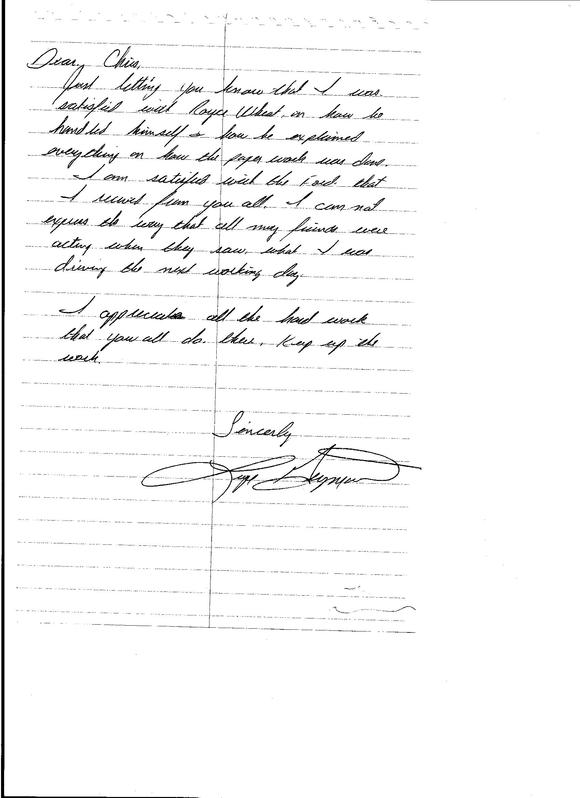 Dear, Chris,
Just letting you know that I was
satisfied with Royce Wheat, on how he
handled himself & how he explained
everything on how the paper work was done.
I am satisfied with the Ford that
I received from you all. I can not
express the way that all my friends were
acting when they saw what I was
driving the next working day
I appreciate all the hard work
that you all do there. Keep up the
work.
Sincerly